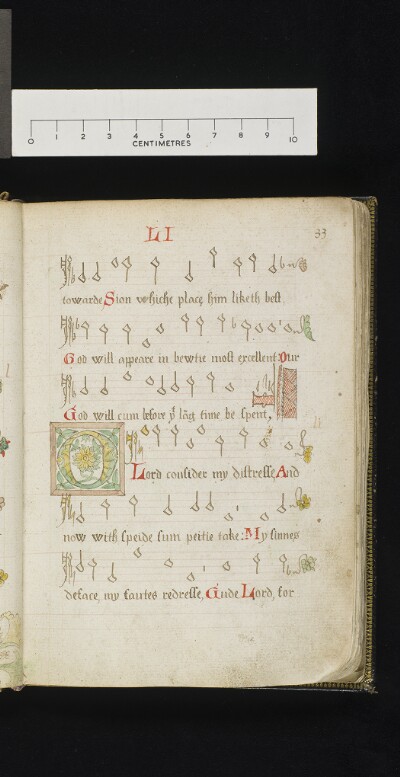 0 1 2 3 4 5 6 7 8 9 10
CENTIMETRES
LI
33
towarde Sion whiche place him liketh best
God will appeare in bewtie most excellent Our
God will cum before yt lāg time be spent,
O Lord consider my distresse, And
now with speide sum petie take: My sinnes
deface, my fautes redresse, Gude Lord, for